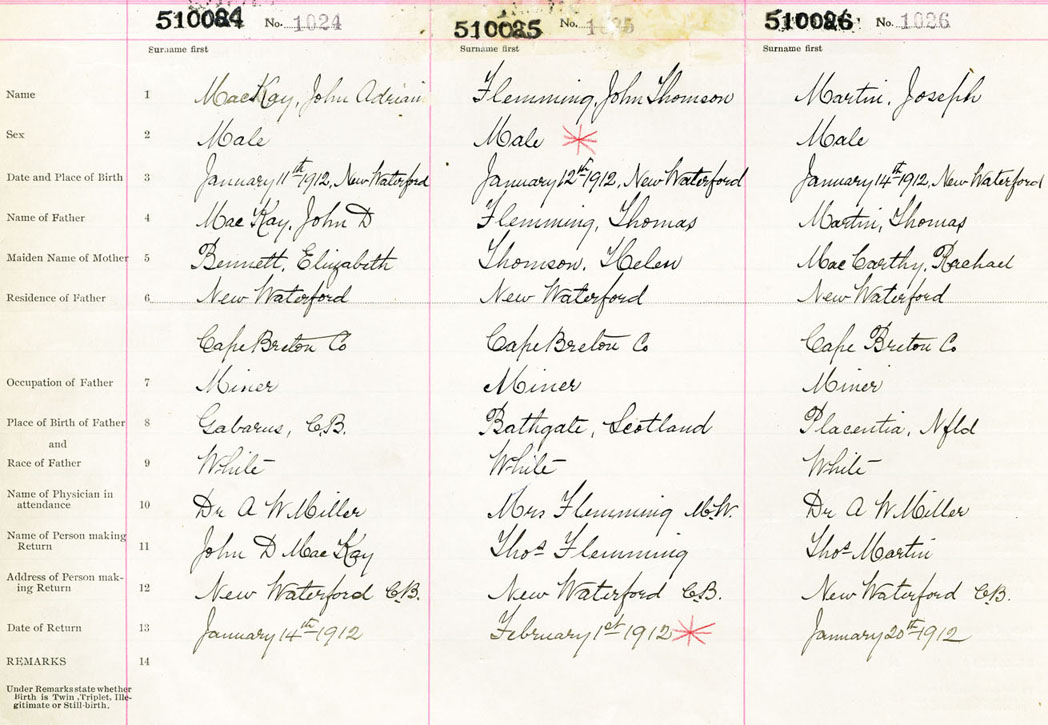 510084 No. 1024 510085 No. 1025 510086 No. 1026
Surname first Surname first Surname first
Name 1 MacKay, John Adrian Flemming, John Thomson Martin, Joseph
Sex 2 Male Male Male
Date and Place of Birth 3 January 11th 1912, New Waterford January 12th 1912, New Waterford January 14th 1912, New Waterford
Name of Father 4 MacKay, John D Flemming, Thomas Martin, Thomas
Maiden Name of Mother 5 Bennett, Elizabeth Thomson, Helen MacCarthy, Rachael
Residence of Father 6 New Waterford New Waterford New Waterford
Cape Breton Co Cape Breton Co Cape Breton Co
Occupation of Father 7 Miner Miner Miner
Place of Birth of Father 8 Gabarus, C.B. Bathgate, Scotland Placentia, Nfld
and
Race of Father 9 White White White
Name of Physician in
attendance 10 Dr A W Miller Mrs Flemming M.W. Dr A W Miller
Name of Person making
Return 11 John D MacKay Thos Flemming Thos Martin
Address of Person mak-
ing Return 12 New Waterford C.B. New Waterford C.B. New Waterford C.B.
Date of Return 13 January 14th 1912 February 1st 1912 January 20th 1912
REMARKS 14
Under Remarks state whether
Birth is Twin, Triplet, Ille-
gitimate or Still-birth.